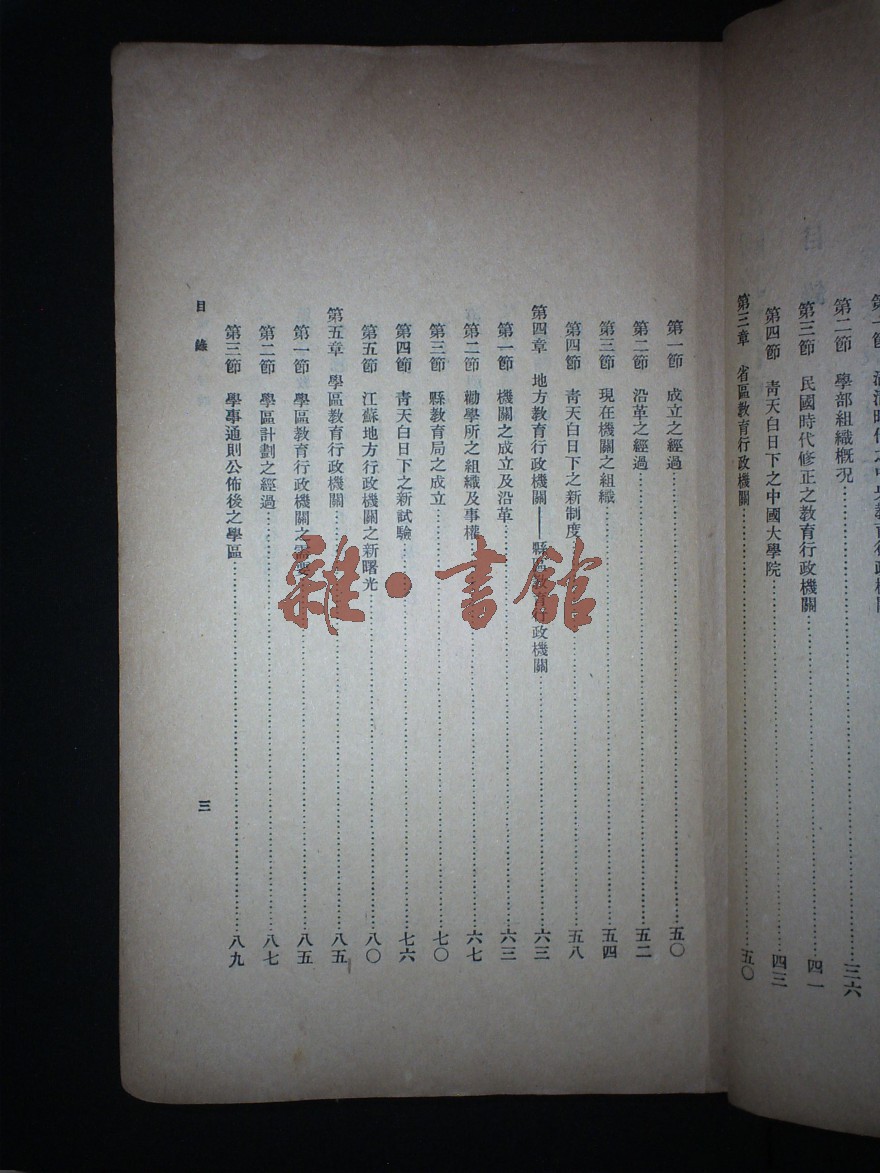 第二節 學部組織槪況……三六
第三節 民國時代修正之教育行政機關……四一
第四節 靑天白日下之中國大學院……四三
第三章 省區教育行政機關……五〇
第一節 成立之經過……五〇
第二節 沿革之經過……五二
第三節 現在機關之組織……五四
第四節 靑天白日下之新制度……五八
第四章 地方教育行政機關——縣區教育行政機關……六三
第一節 機關之成立及沿革……六三
第二節 勸學所之組織及事權……六七
第三節 縣教育局之成立……七〇
第四節 靑天白日下之新試驗……七六
第五節 江蘇地方行政機關之新曙光……八〇
第五章 學區教育行政機關……八五
第一節 學區教育行政機關之需要……八五
第二節 學區計劃之經過……八七
第三節 學事通則公佈後之學區……八九
目錄
三
雜·書館